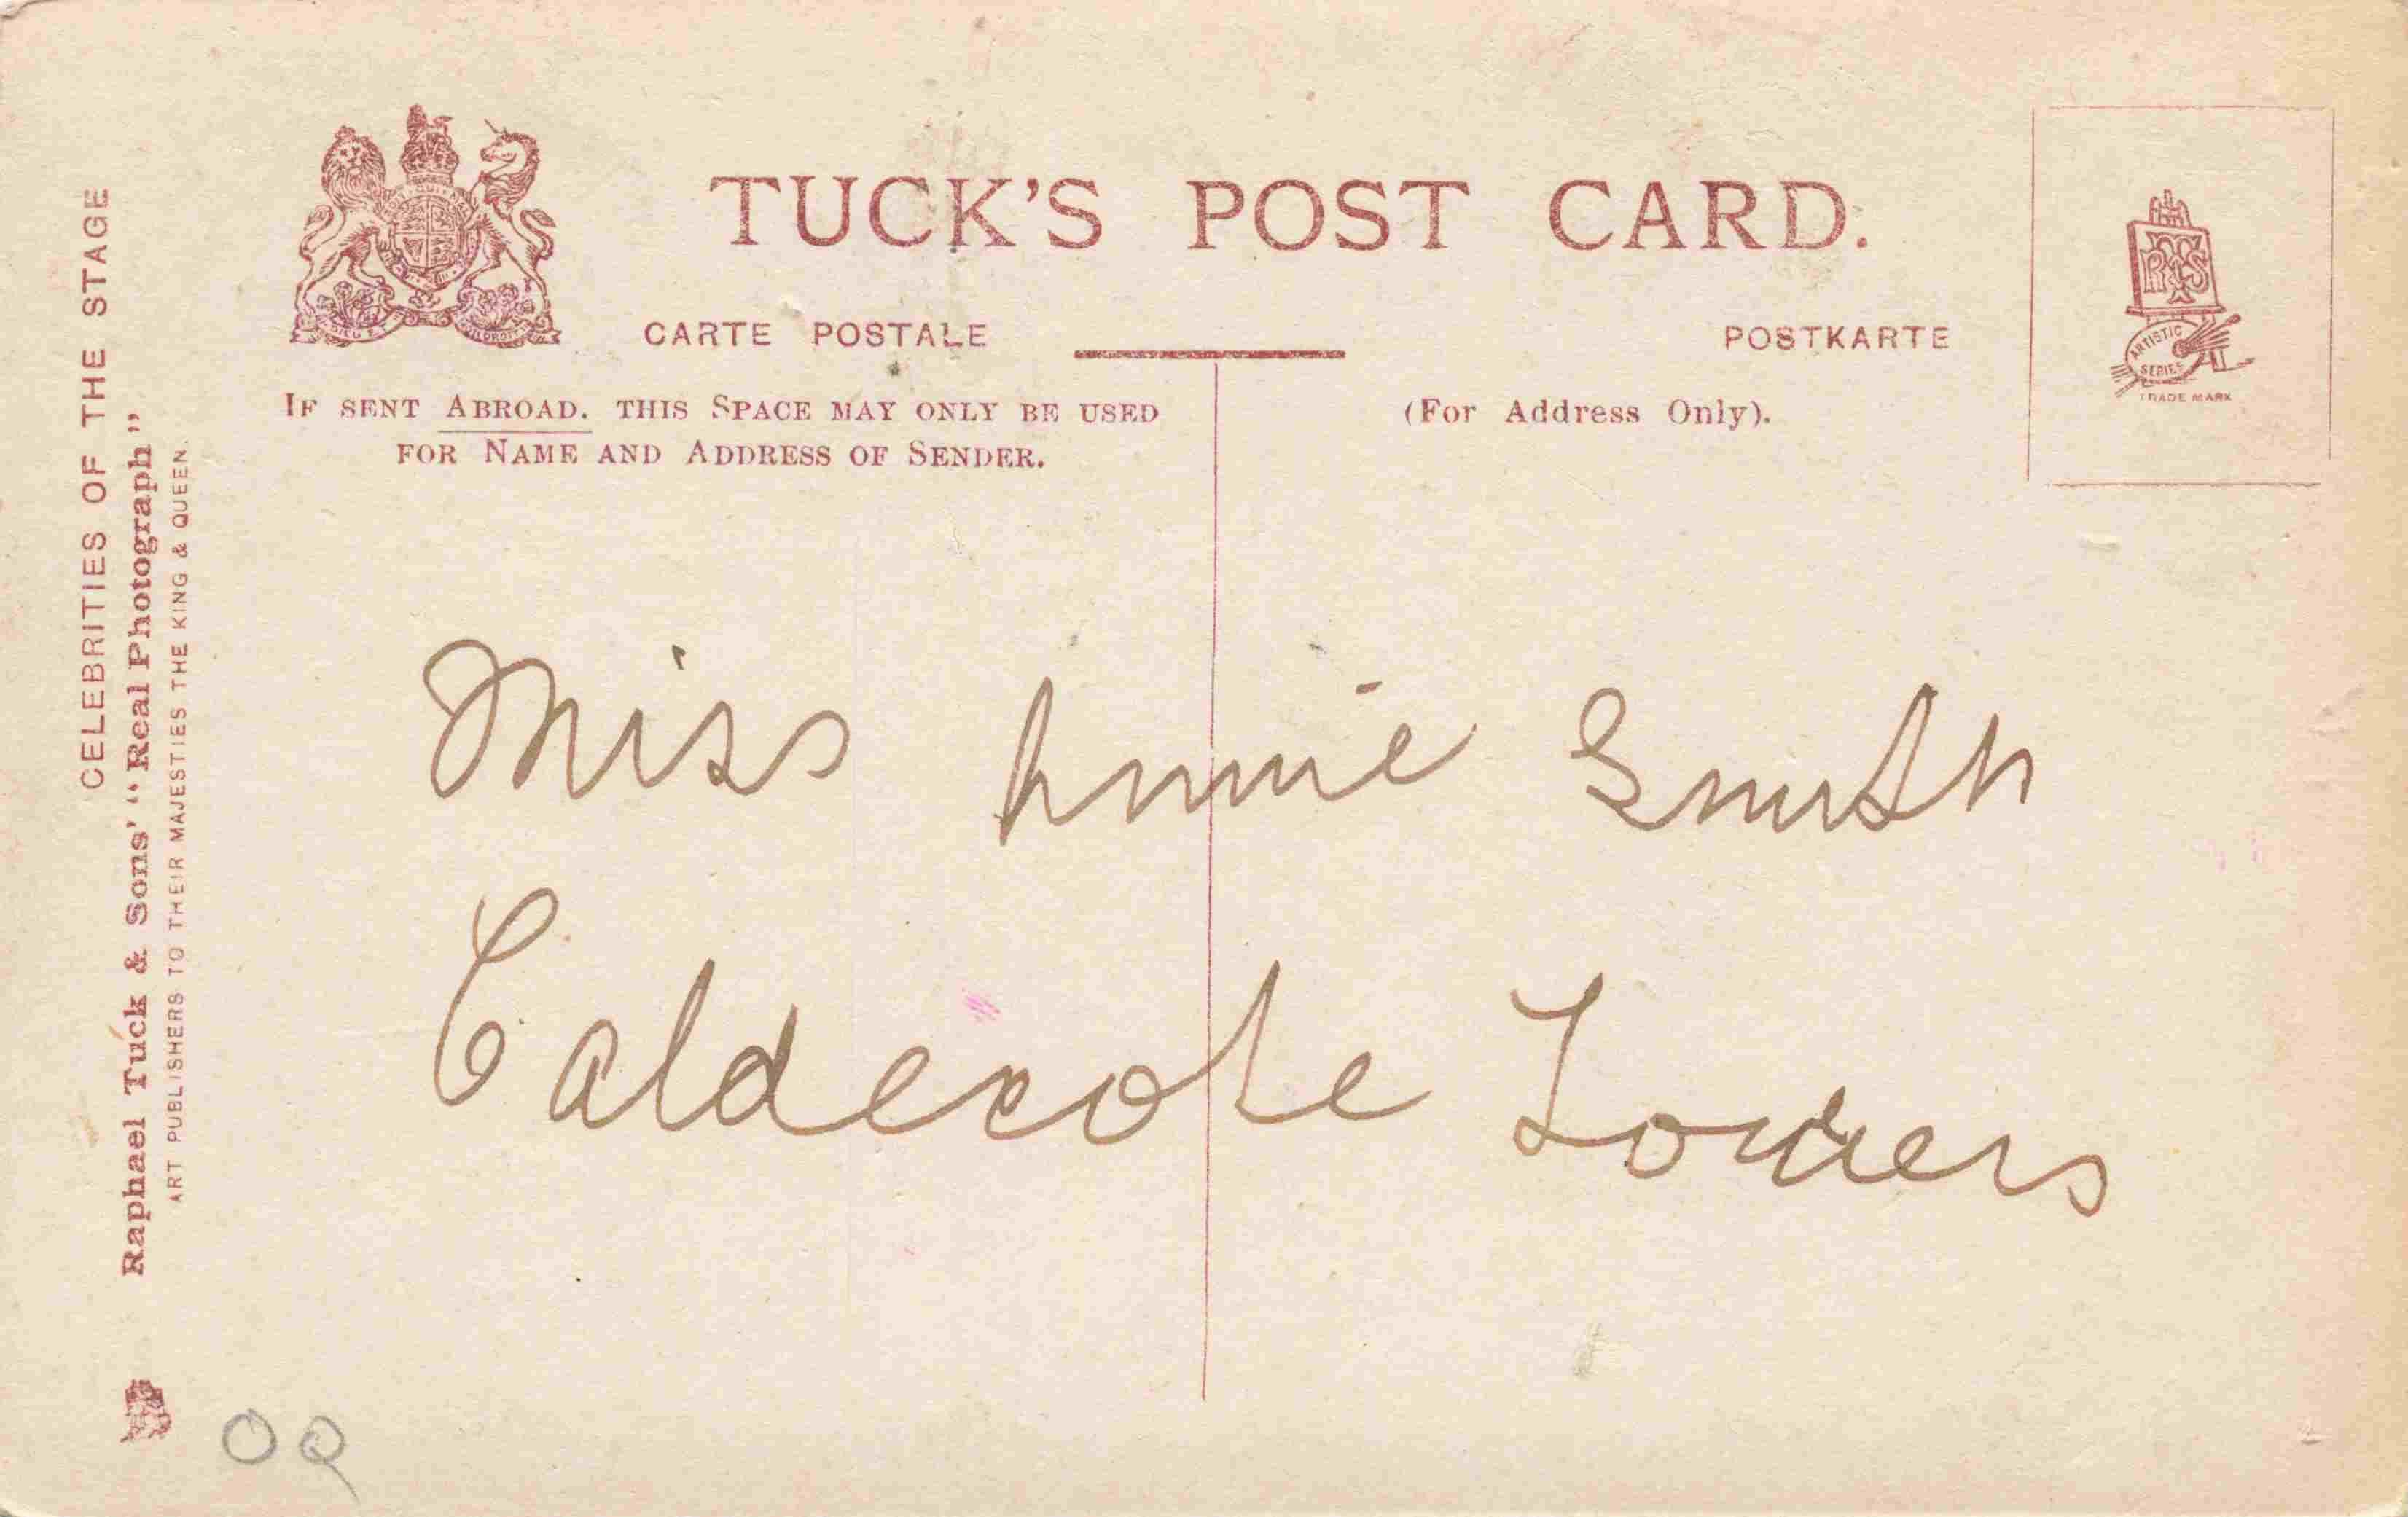 TUCK'S POST CARD.
CARTE POSTALE
POSTKARTE
IF SENT ABROAD. THIS SPACE MAY ONLY BE USED
FOR NAME AND ADDRESS OF SENDER.
(For Address Only).
ARTISTIC
SERIES
TRADE MARK
CELEBRITIES OF THE STAGE
Raphael Tuck & Sons' "Real Photograph"
ART PUBLISHERS TO THEIR MAJESTIES THE KING & QUEEN.
Miss Annie Smith
Caldecote Towers
OQ